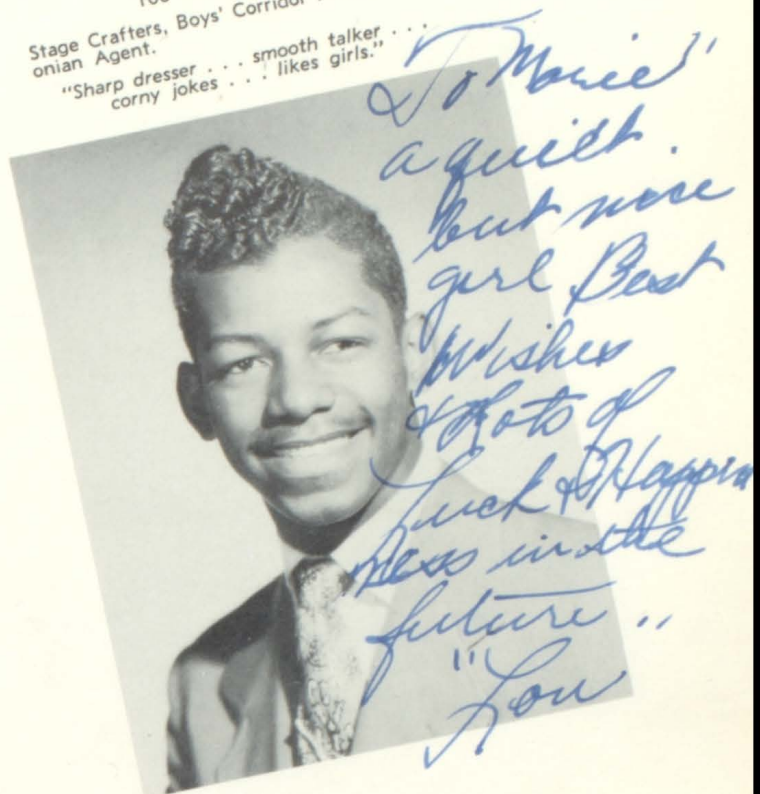 Stage Crafters, Boys' Corridor
onian Agent.
"Sharp dresser . . . smooth talker . . .
corny jokes . . . likes girls."
To
a quiet
but nice
girl Best
Wishes
& Lots of
Luck & Happin
ness in the
future ..
"Lou